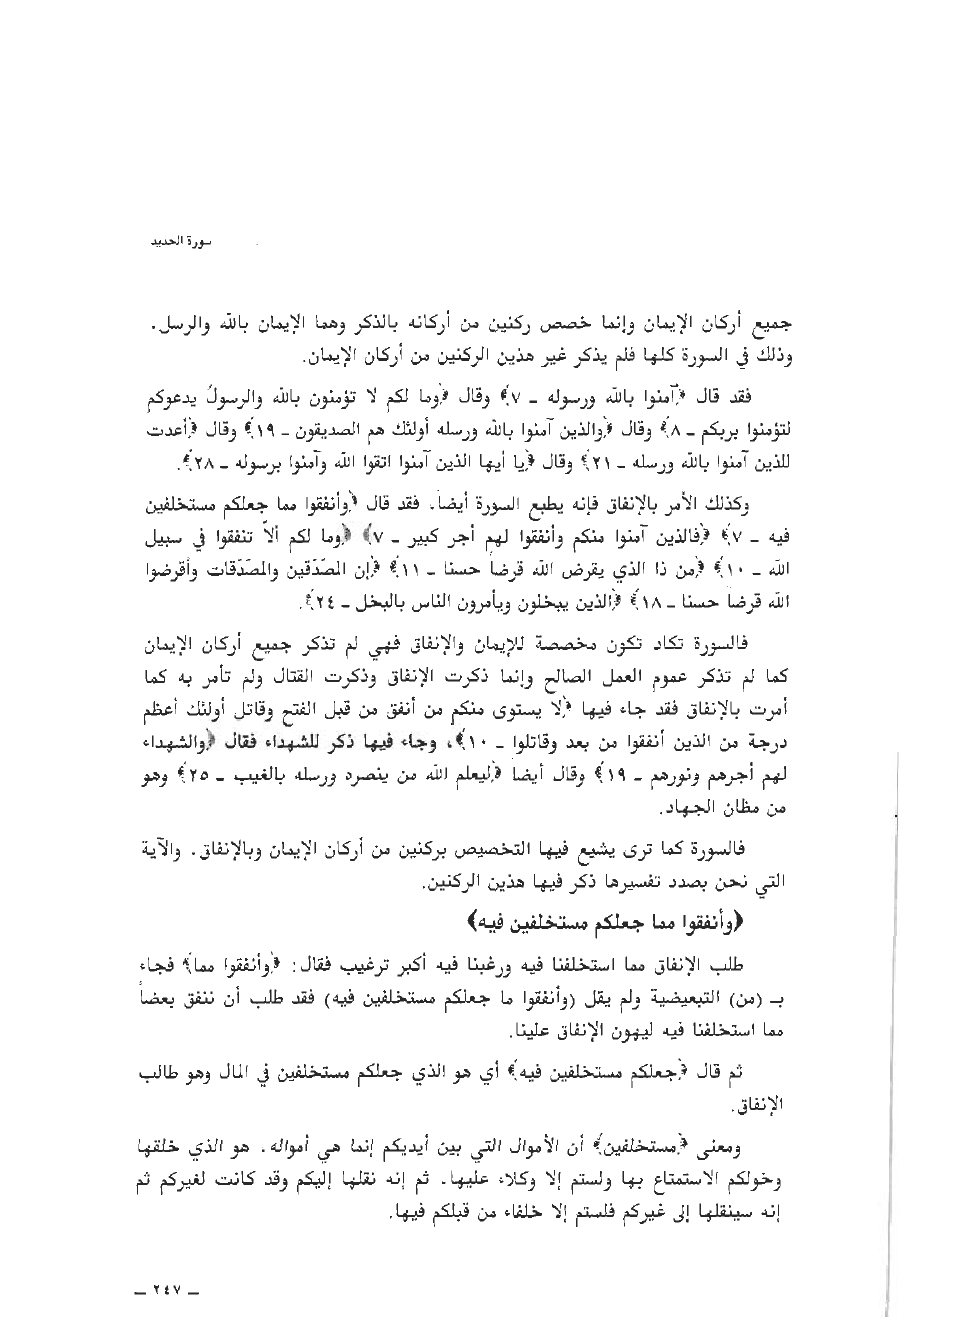 سورة الحديد
جميع أركان الإيمان وإنما خصص ركنين من أركانه بالذكر وهما الإيمان بالله والرسل.
وذلك في السورة كلها فلم يذكر غير هذين الركنين من أركان الإيمان.
فقد قال ﴿آمنوا بالله ورسوله ـ ٧﴾ وقال ﴿وما لكم لا تؤمنون بالله والرسولُ يدعوكم
لتؤمنوا بربكم ـ ٨﴾ وقال ﴿والذين آمنوا بالله ورسله أولئك هم الصديقون ـ ١٩﴾ وقال ﴿أعدت
للذين آمنوا بالله ورسله ـ ٢١﴾ وقال ﴿يا أيها الذين آمنوا اتقوا الله وآمنوا برسوله ـ ٢٨﴾.
وكذلك الأمر بالإنفاق فإنه يطبع السورة أيضاً. فقد قال ﴿وأنفقوا مما جعلكم مستخلفين
فيه ـ ٧﴾ ﴿فالذين آمنوا منكم وأنفقوا لهم أجر كبير ـ ٧﴾ ﴿وما لكم ألاّ تنفقوا في سبيل
الله ـ ١٠﴾ ﴿من ذا الذي يقرض الله قرضاً حسنا ـ ١١﴾ ﴿إن المصّدّقين والمصّدّقات وأقرضوا
الله قرضاً حسنا ـ ١٨﴾ ﴿الذين يبخلون ويأمرون الناس بالبخل ـ ٢٤﴾.
فالسورة تكاد تكون مخصصة للإيمان والإنفاق فهي لم تذكر جميع أركان الإيمان
كما لم تذكر عموم العمل الصالح وإنما ذكرت الإنفاق وذكرت القتال ولم تأمر به كما
أمرت بالإنفاق فقد جاء فيها ﴿لا يستوى منكم من أنفق من قبل الفتح وقاتل أولئك أعظم
درجة من الذين أنفقوا من بعد وقاتلوا ـ ١٠﴾، وجاء فيها ذكر للشهداء فقال ﴿والشهداء
لهم أجرهم ونورهم ـ ١٩﴾ وقال أيضاً ﴿ليعلم الله من ينصره ورسله بالغيب ـ ٢٥﴾ وهو
من مظان الجهاد.
فالسورة كما ترى يشيع فيها التخصيص بركنين من أركان الإيمان وبالإنفاق. والآية
التي نحن بصدد تفسيرها ذكر فيها هذين الركنين.
﴿وأنفقوا مما جعلكم مستخلفين فيه﴾
طلب الإنفاق مما استخلفنا فيه ورغبنا فيه أكبر ترغيب فقال: ﴿وأنفقوا مما﴾ فجاء
بـ (من) التبعيضية ولم يقل (وأنفقوا ما جعلكم مستخلفين فيه) فقد طلب أن ننفق بعضاً
مما استخلفنا فيه ليهون الإنفاق علينا.
ثم قال ﴿جعلكم مستخلفين فيه﴾ أي هو الذي جعلكم مستخلفين في المال وهو طالب
الإنفاق.
ومعنى ﴿مستخلفين﴾ أن الأموال التي بين أيديكم إنما هي أمواله. هو الذي خلقها
وخولكم الاستمتاع بها ولستم إلا وكلاء عليها. ثم إنه نقلها إليكم وقد كانت لغيركم ثم
إنه سينقلها إلى غيركم فلستم إلا خلفاء من قبلكم فيها.
ـ ٢٤٧ ـ